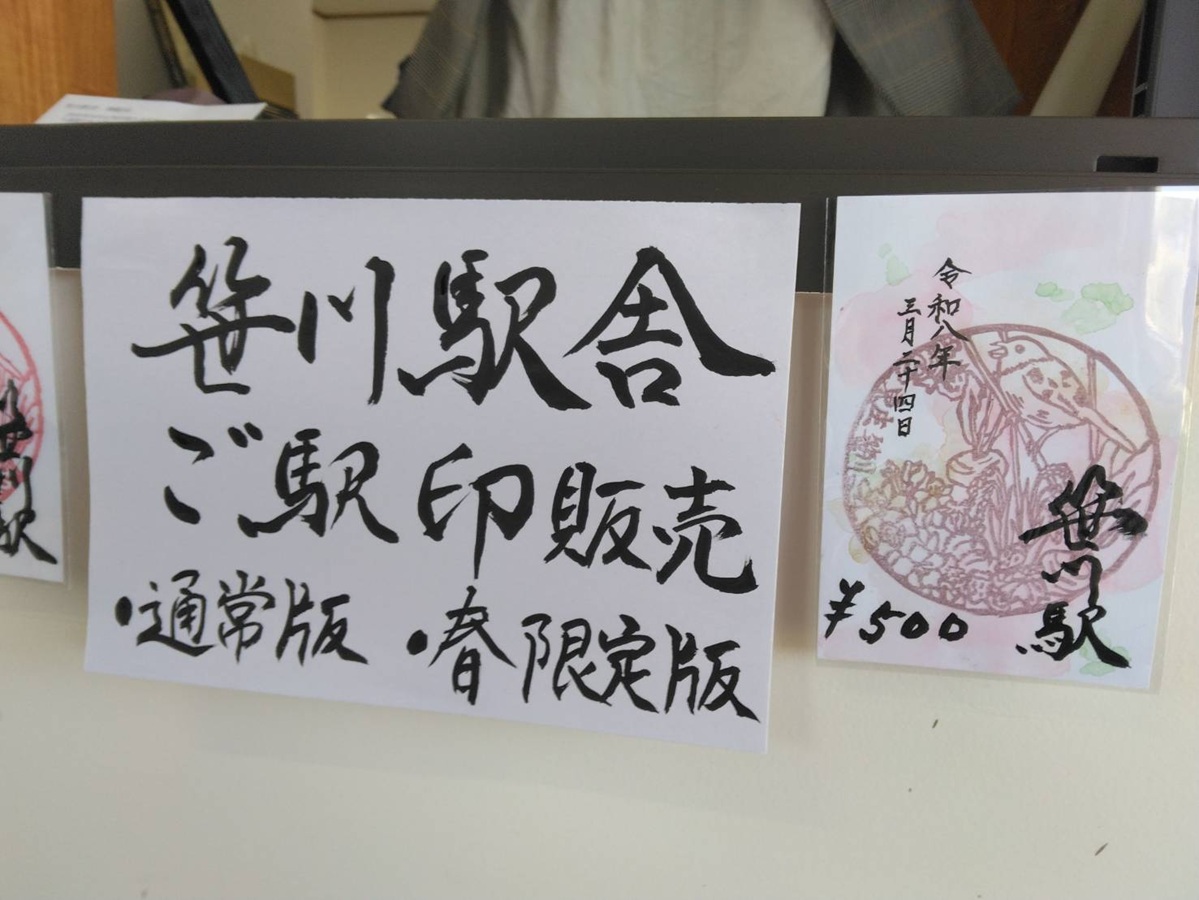 笹川駅舎
ご駅印販売
・通常版 ・春限定版
令和八年
三月二十四日
笹川駅
¥500
笹川駅